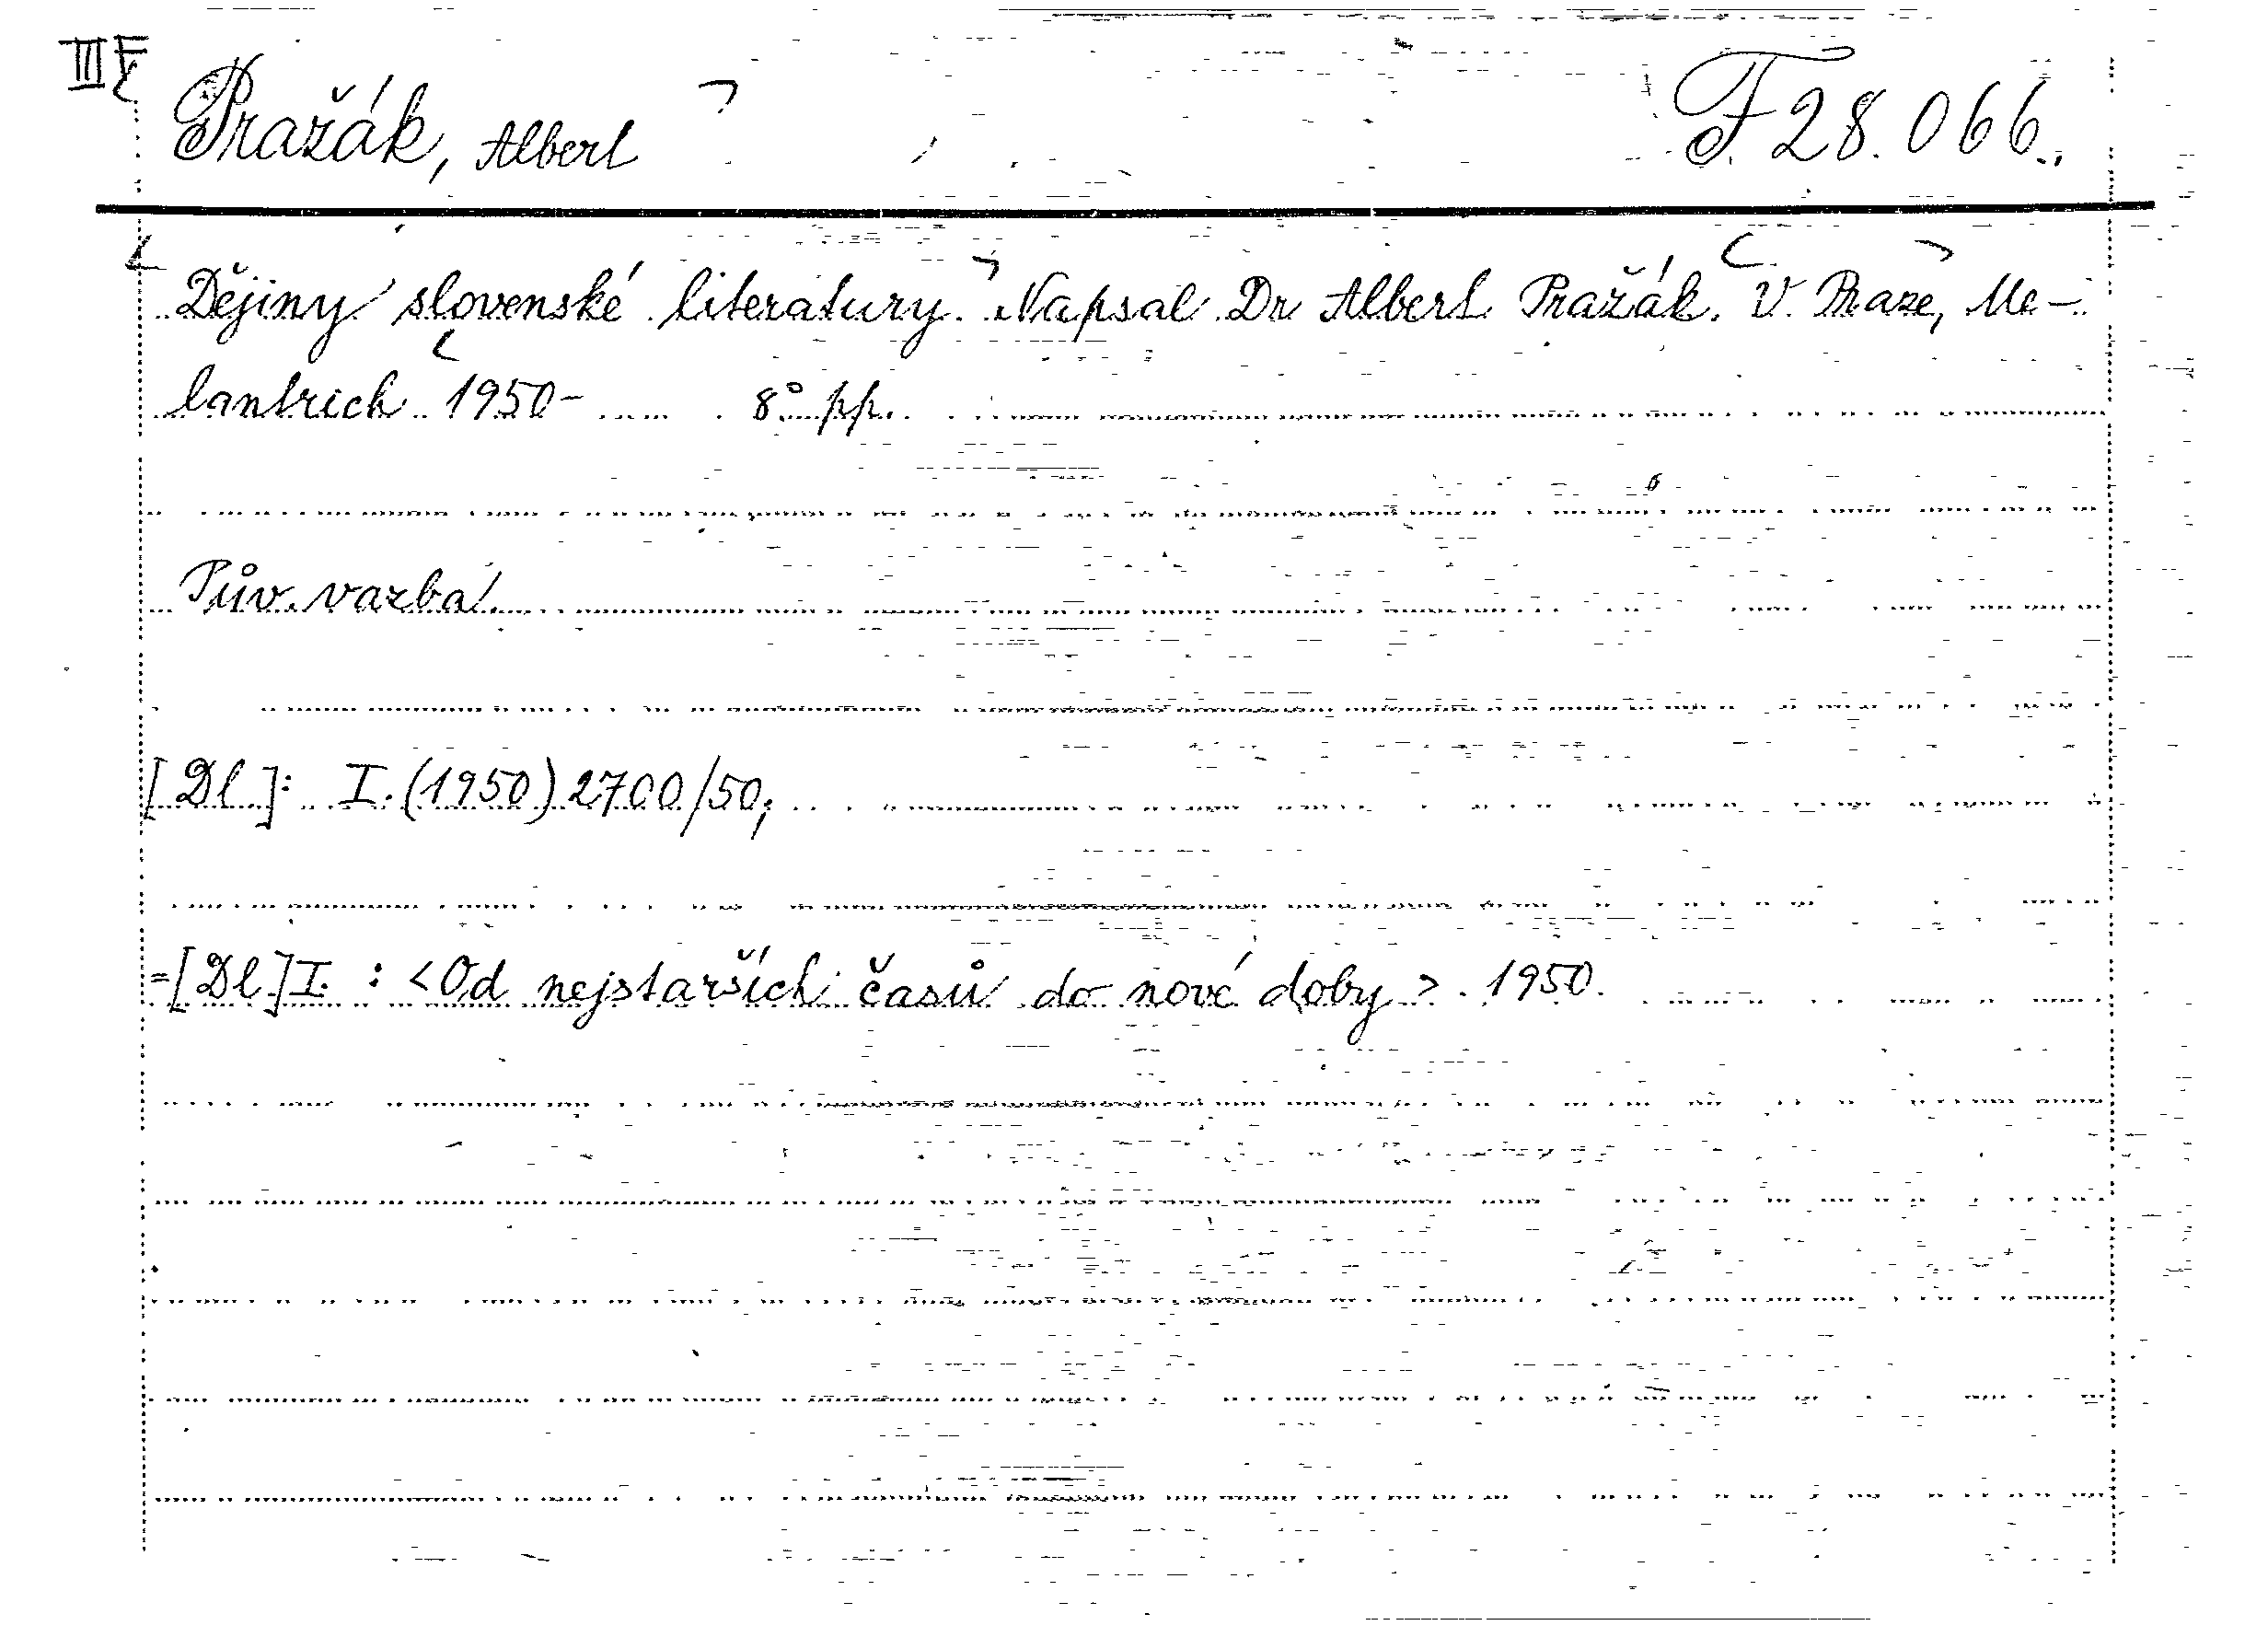 III F
Pražák, Albert F 28.066.,
Dějiny slovenské literatury. Napsal Dr Albert Pražák. V Praze, Me-
lantrich 1950- 8° pp.
Pův. vazba.
[Dl]: I. (1950) 2700/50;
=[Dl] I. : <Od nejstarších časů do nové doby>. 1950.